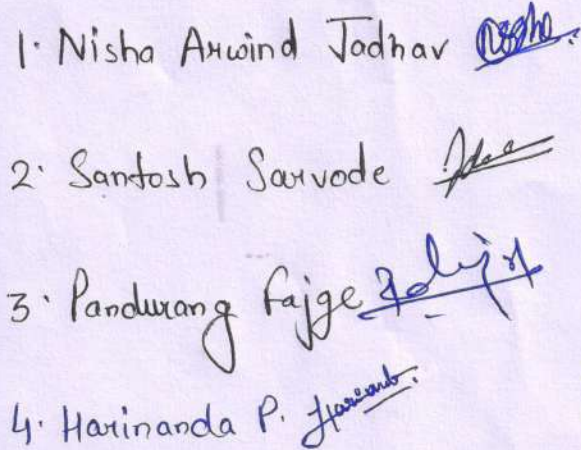 1. Nisha Arwind Jadhav Nisha
2. Santosh Sarvode
3. Pandurang Fajge
4. Harinanda P. Harinand.